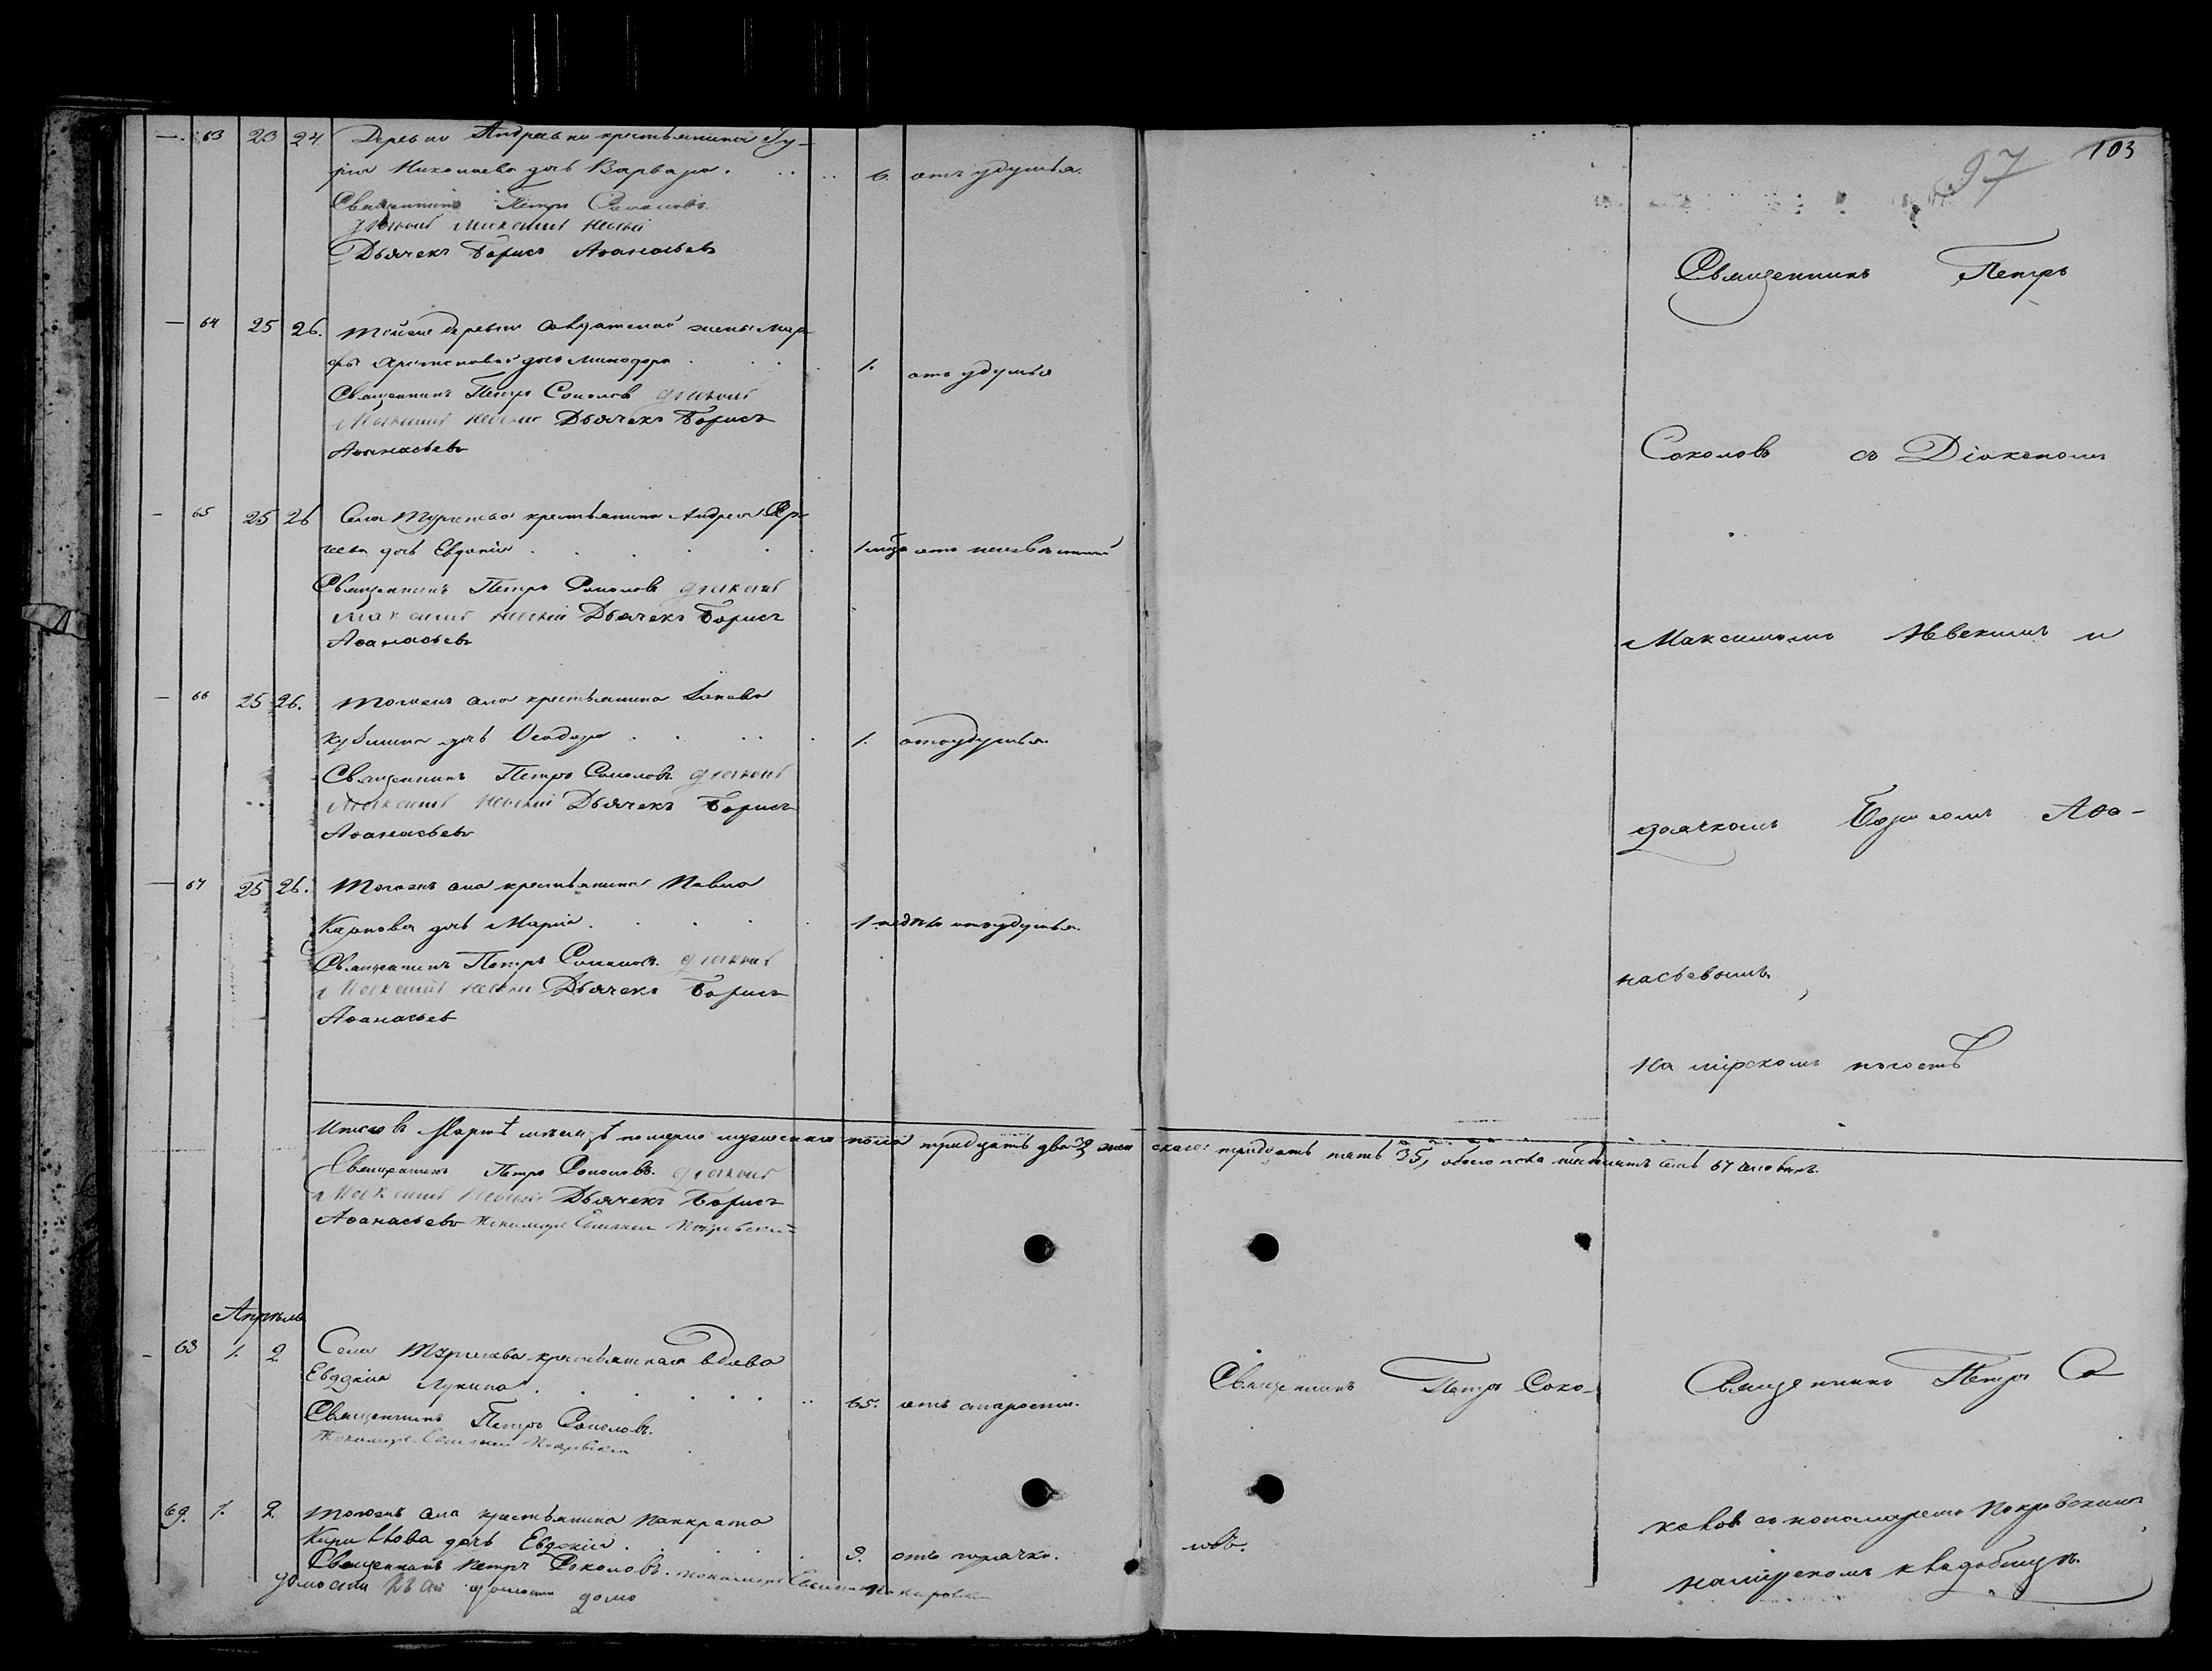 103
97
63 23 24 Деревни Андреевки крестьянина Гу-
рія Николаева дочь Варвара. 6. отъ удушья.
Священникъ Петръ Соколовъ.
Діаконъ Максимъ
Дьячекъ Борисъ Аѳанасьевъ
64 25 26. Тойже деревни солдатской жены Мар-
фы дочь Минодора 1. отъ удушья
Священникъ Петръ Соколовъ Діаконъ
Максимъ Дьячекъ Борисъ
Аѳанасьевъ
65 25 26 Села крестьянина Андрея
дочь Евдокія 1 отъ неизвѣстной
Священникъ Петръ Соколовъ Діаконъ
Максимъ Дьячекъ Борисъ
Аѳанасьевъ
66 25 26. Тогожъ села крестьянина Іакова
Кузмина дочь Ѳеодора 1. отъ удушья.
Священникъ Петръ Соколовъ. Діаконъ
Максимъ Дьячекъ Борисъ
Аѳанасьевъ
67 25 26. Тогожъ села крестьянина Павла
Карпова дочь Марія. 1 отъ удушья.
Священникъ Петръ Соколовъ. Діаконъ
Максимъ Дьячекъ Борисъ
Аѳанасьевъ
Священникъ Петръ
Соколовъ съ Діакономъ
Максимомъ и
дьячкомъ Борисомъ Аѳа-
насьевымъ.
На мірскомъ погостѣ
Итого въ Мартѣ мѣсяцѣ померло мужескаго пола тридцать два 32 женскаго: тридцать пять 35, обоего пола шестьдесятъ семь 67 человѣкъ.
Священникъ Петръ Соколовъ. Діаконъ
Максимъ Дьячекъ Борисъ
Аѳанасьевъ Пономарь Покровскій
Апрѣль
68 1. 2 Села крестьянская вдова
Евдокія Лукина. 65. отъ старости.
Священникъ Петръ Соколовъ.
Пономарь Покровскій
69. 1. 2 Тогожъ села крестьянина Панкрата
Кирилова дочь Евдокія. 9. отъ горячки.
Священникъ Петръ Соколовъ. Пономарь Покровскій
Священникъ Петръ Соко-
ловъ.
Священникъ Петръ Со
коловъ съ пономаремъ Покровскимъ
на мірскомъ кладбищѣ.